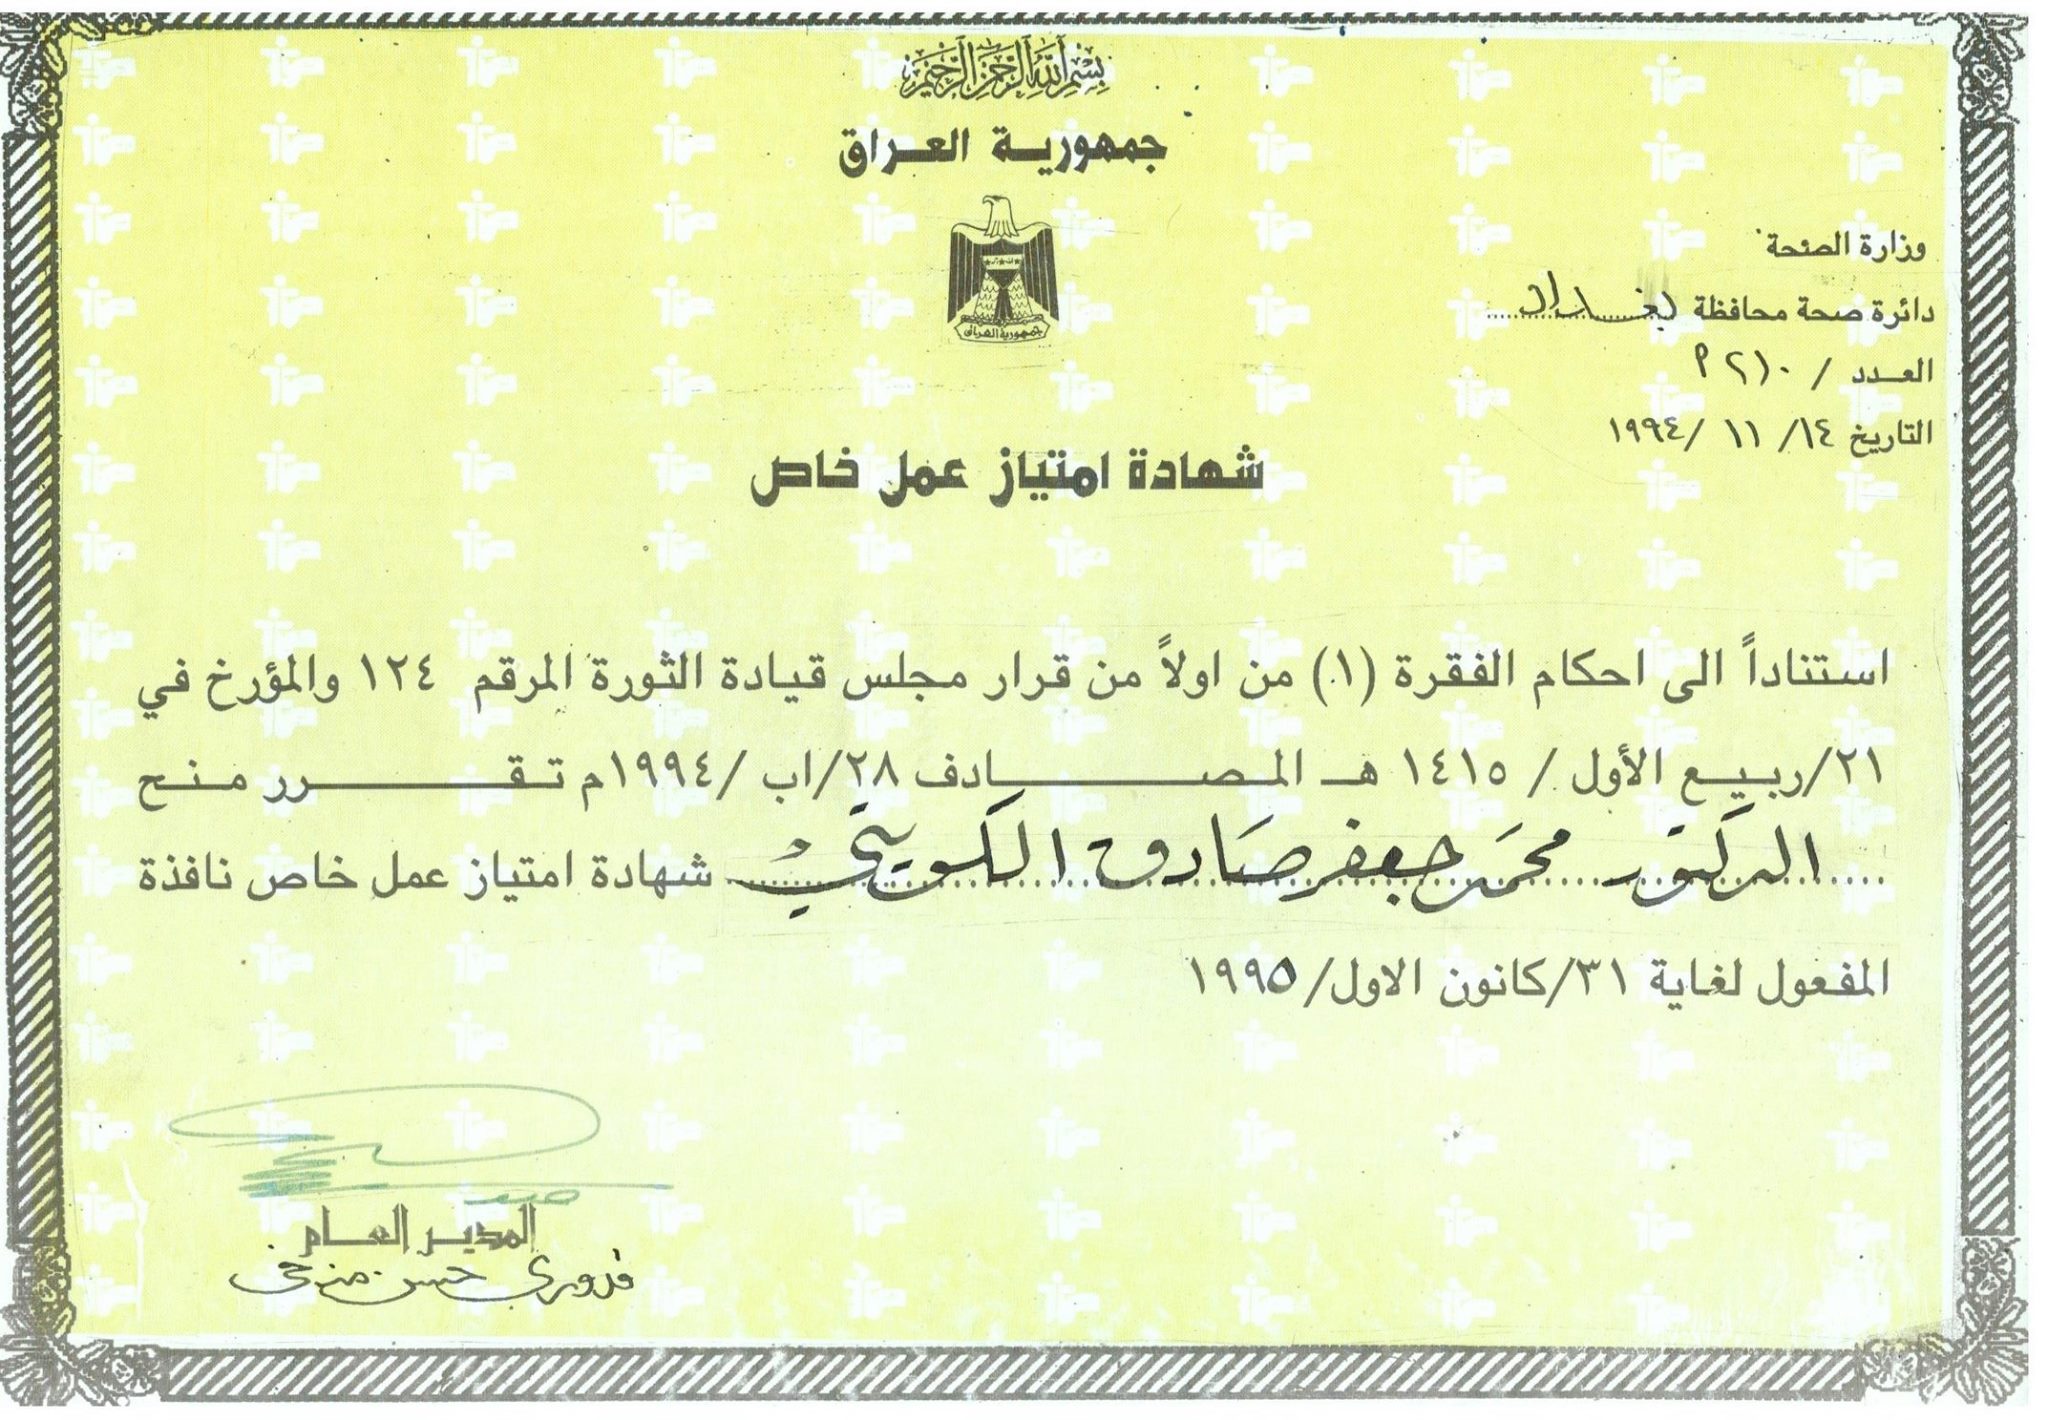 بسم الله الرحمن الرحيم
جمهورية العراق
جمهورية العراق
وزارة الصحة
دائرة صحة محافظة بغداد
العدد / ٢١٠ م
التاريخ ١٤/ ١١ /١٩٩٤
شهادة امتياز عمل خاص
استناداً الى احكام الفقرة (١) من اولاً من قرار مجلس قيادة الثورة المرقم ١٢٤ والمؤرخ في
٢١/ربيع الأول / ١٤١٥ هـ المصادف ٢٨/اب /١٩٩٤م تقرر منح
الدكتور محمد جعفر صادق الكويتي شهادة امتياز عمل خاص نافذة
المفعول لغاية ٣١/كانون الاول/١٩٩٥
المدير العام
حسن